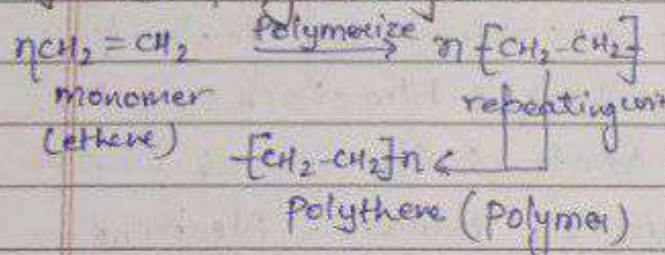 nCH2 = CH2 Polymerize n [CH2-CH2]
monomer repeating uni
(ethene)
-[CH2-CH2]n
Polythene (Polymer)